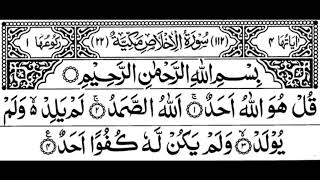 اٰیَاتُهَا ٤ (١١٢) سُوْرَةُ الْاِخْلَاصِ مَكِّیَّةٌ (٢٢) رُكُوْعُهَا ١
بِسْمِ اللّٰهِ الرَّحْمٰنِ الرَّحِیْمِ
قُلْ هُوَ اللّٰهُ اَحَدٌ ۚ ١ اَللّٰهُ الصَّمَدُ ۚ ٢ لَمْ یَلِدْ ۙ۬ وَلَمْ
یُوْلَدْ ۙ ٣ وَلَمْ یَكُنْ لَّهٗ كُفُوًا اَحَدٌ ۠ ٤